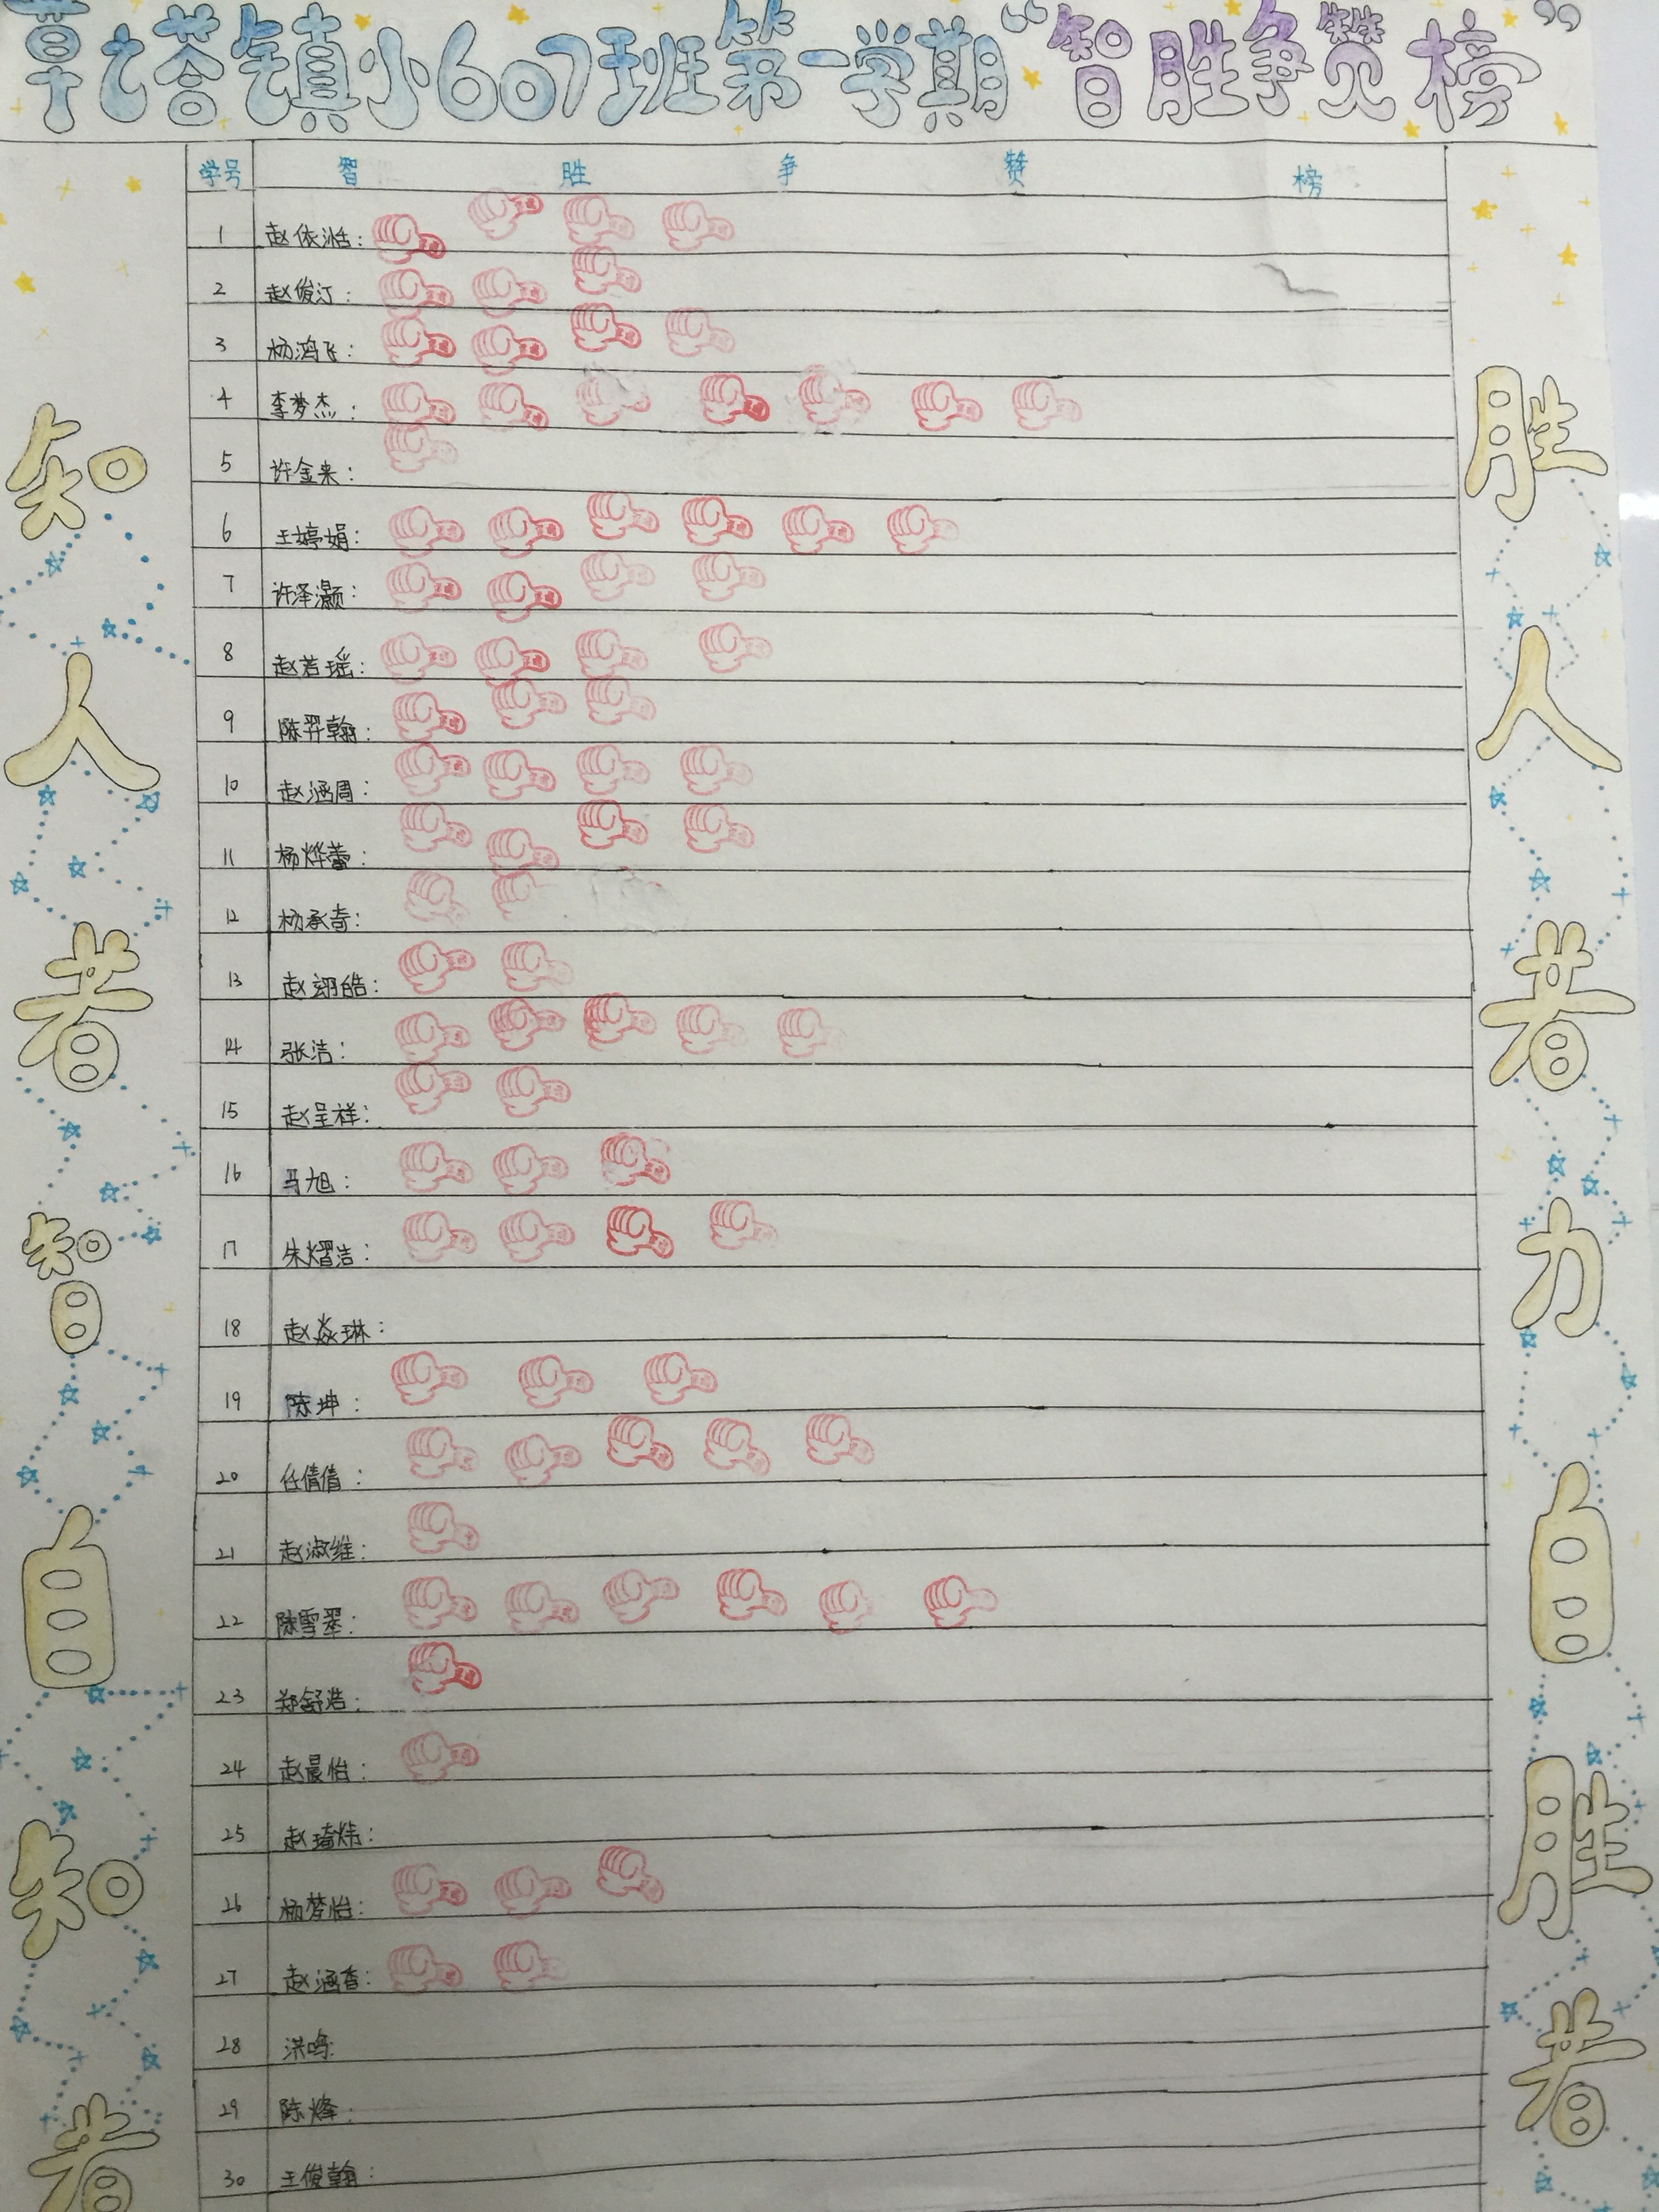 草七塔镇小607班第一学期“智胜争赞榜”
学号 智 胜 争 赞 榜
1 赵依湉:
2 赵俊汀:
3 杨鸿飞:
4 李梦杰:
5 许金来:
6 王婷娟:
7 许泽灏:
8 赵若瑶:
9 陈羿翰:
10 赵涵周:
11 杨烨蕾:
12 杨承奇:
13 赵翊皓:
14 张洁:
15 赵呈祥:
16 马旭:
17 朱熠洁:
18 赵焱琳:
19 陈坤:
20 任倩倩:
21 赵淑维:
22 陈雪翠:
23 郑舒浩:
24 赵晨怡:
25 赵琦炜:
26 杨梦怡:
27 赵涵香:
28 洪鸣:
29 陈烽:
30 王俊翰:
知人者智自知者
胜人者力自胜者